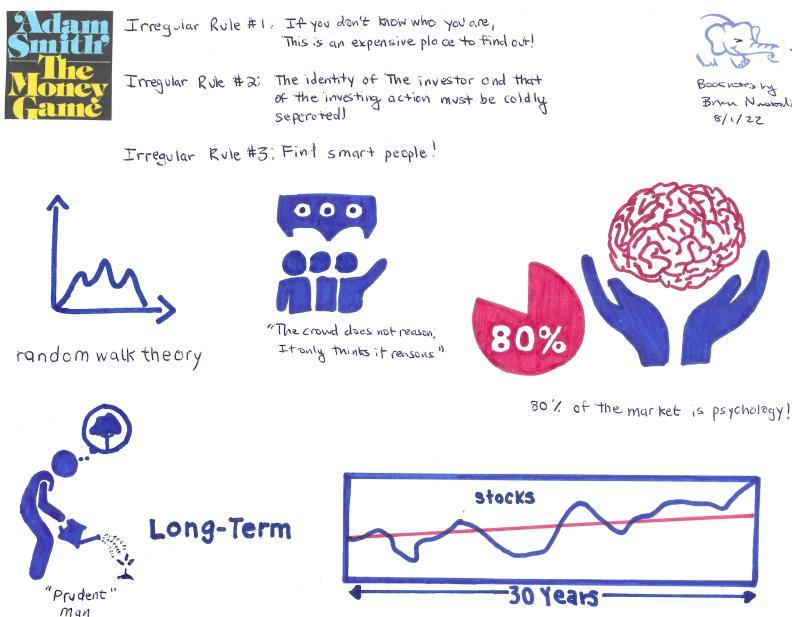 Adam
Smith
The
Money
Game
Irregular Rule #1: If you don't know who you are,
This is an expensive place to find out!
Irregular Rule #2: The identity of The investor and that
of the investing action must be coldly
seperated!
Irregular Rule #3: Find smart people!
Booknotes by
Brian
8/1/22
random walk theory
"The crowd does not reason,
It only thinks it reasons"
80%
80% of the market is psychology!
Long-Term
"Prudent"
Man
stocks
30 Years